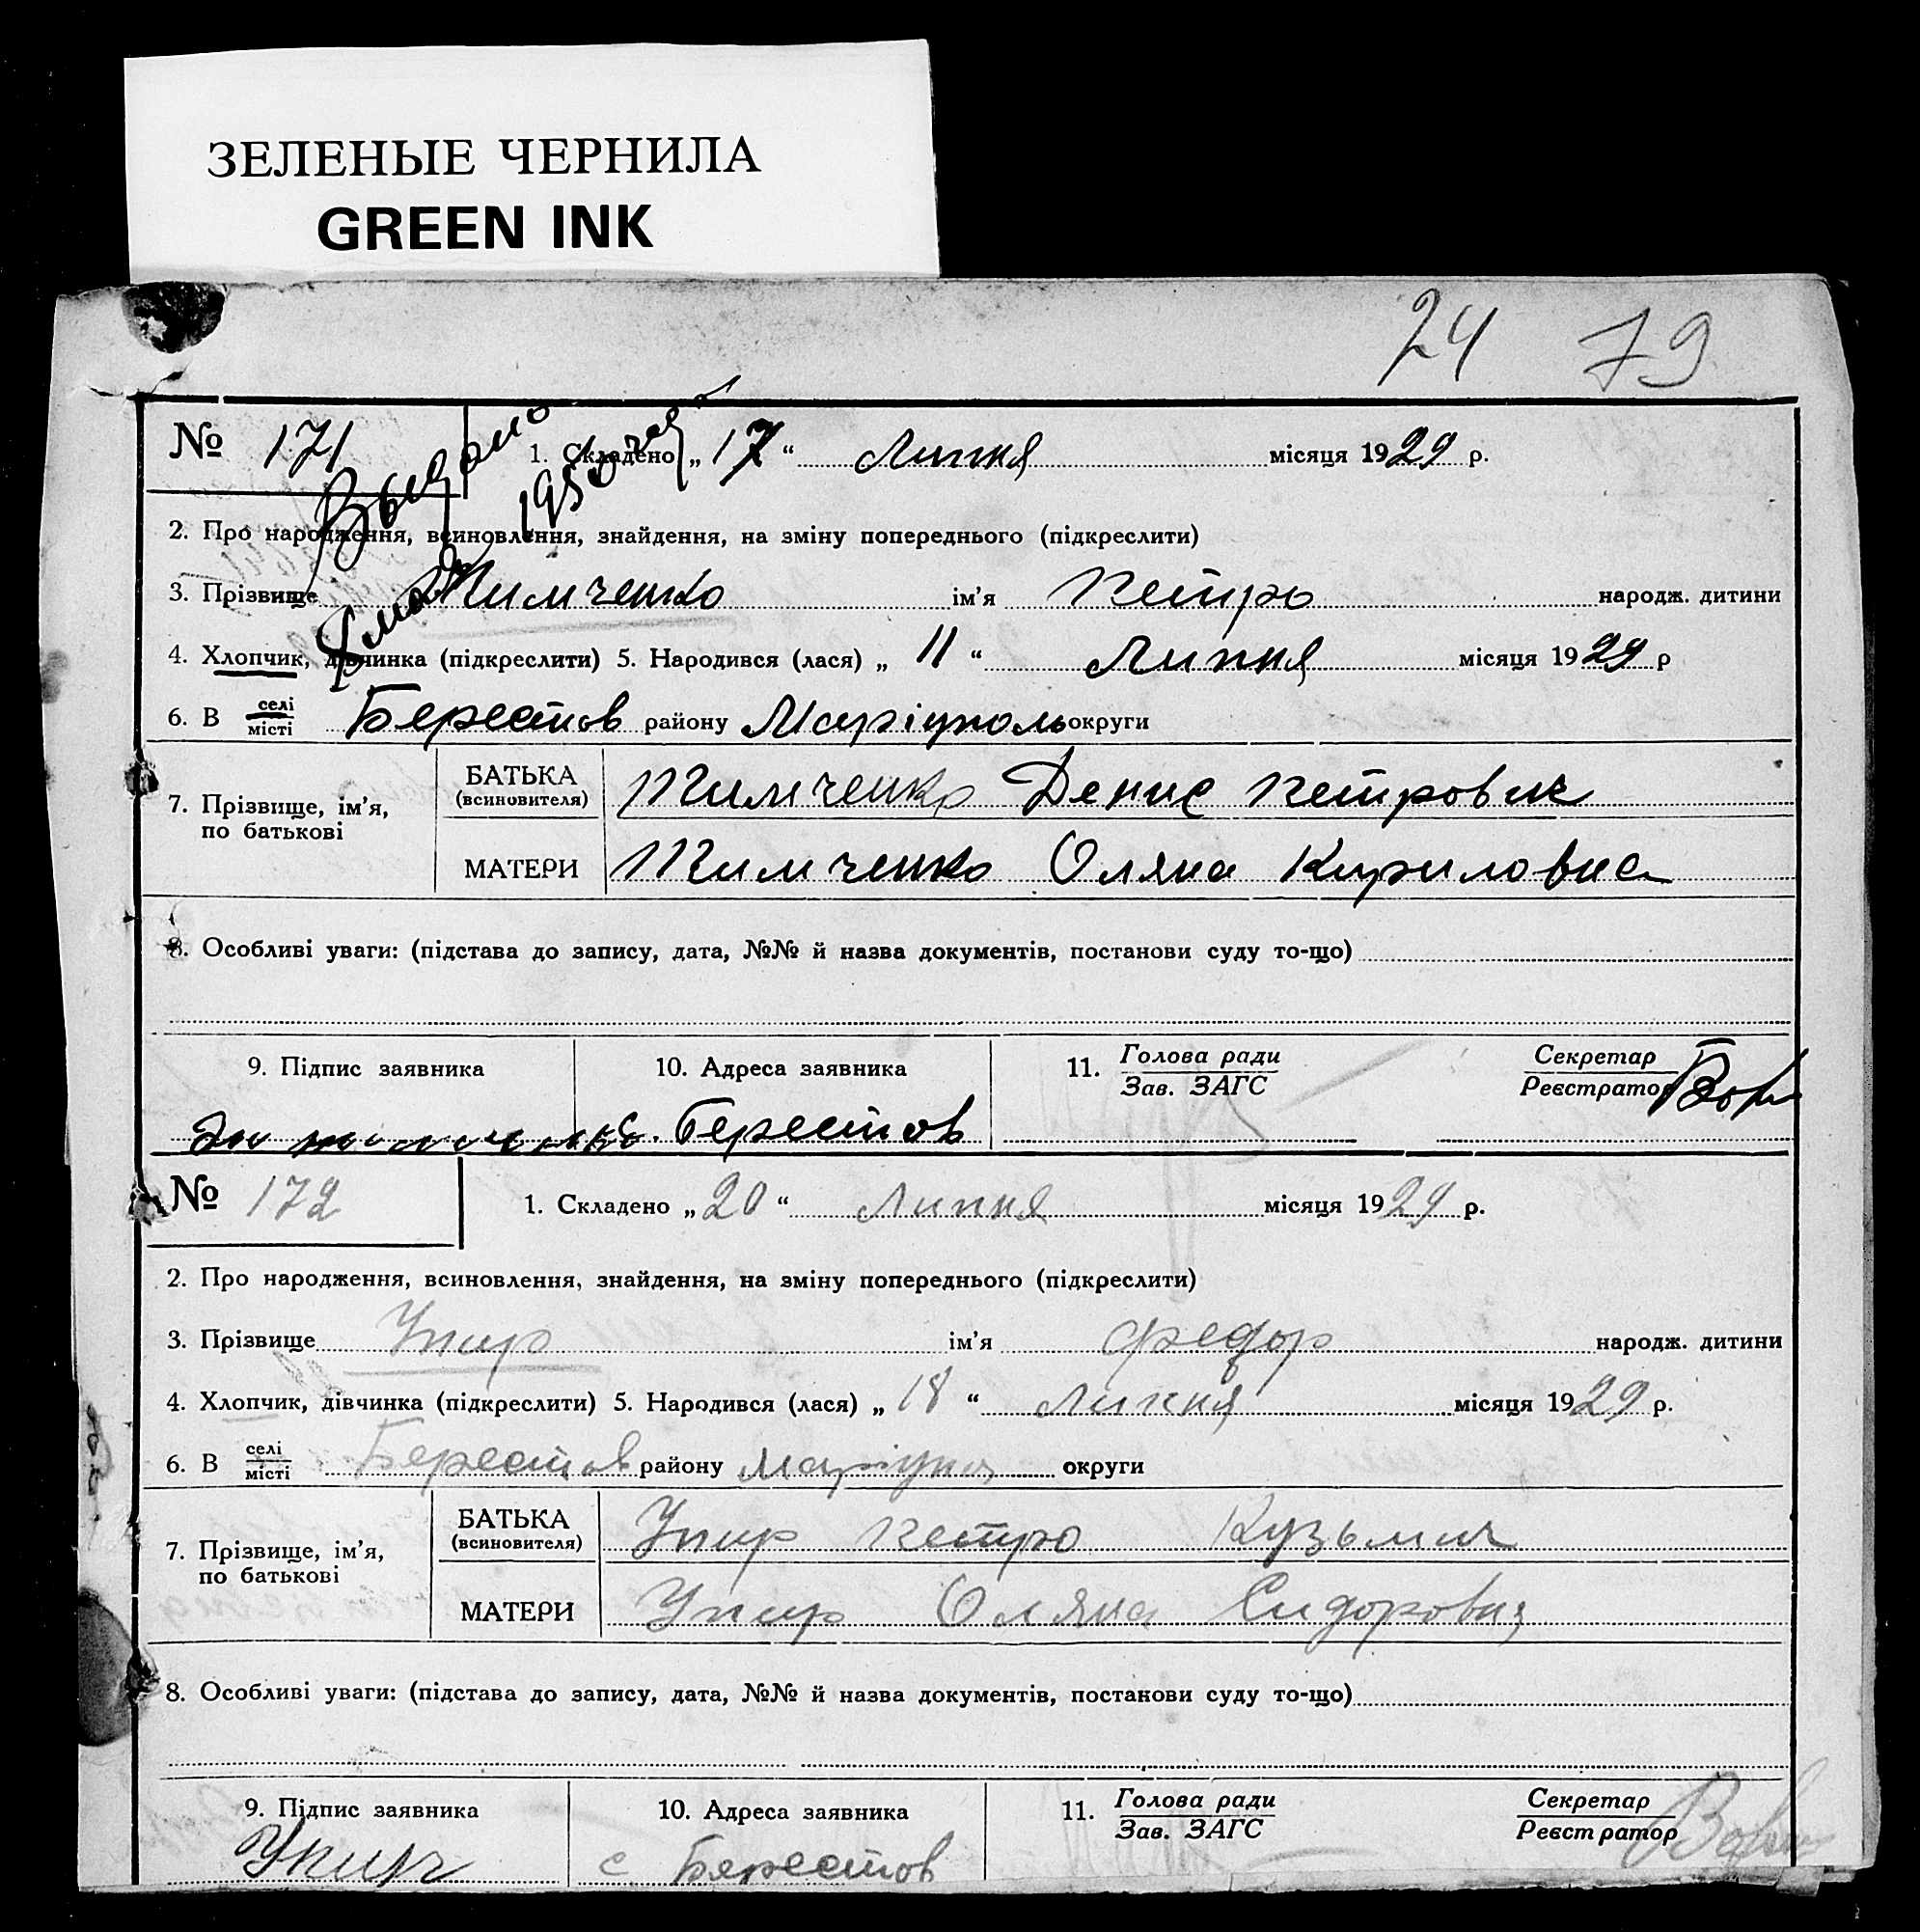 ЗЕЛЕНЫЕ ЧЕРНИЛА
GREEN INK
24 79
№ 171 1. Складено „ 17 “ Липня місяця 1929 р.
2. Про народження, всиновлення, знайдення, на зміну попереднього (підкреслити)
3. Прізвище Тимченко ім’я Петро народж. дитини
4. Хлопчик, дівчинка (підкреслити) 5. Народився (лася) „ 11 “ Липня місяця 1929 р
6. В селі/місті Берестов району Маріуполь округи
7. Прізвище, ім’я, по батькові
БАТЬКА (всиновителя) Тимченко Денис Петрович
МАТЕРИ Тимченко Оляна Кириловна
8. Особливі уваги: (підстава до запису, дата, №№ й назва документів, постанови суду то-що)
9. Підпис заявника 10. Адреса заявника 11. Голова ради/Зав. ЗАГС Секретар/Реєстратор
с. Берестов
№ 172 1. Складено „ 20 “ Липня місяця 1929 р.
2. Про народження, всиновлення, знайдення, на зміну попереднього (підкреслити)
3. Прізвище Упир ім’я Федор народж. дитини
4. Хлопчик, дівчинка (підкреслити) 5. Народився (лася) „ 18 “ Липня місяця 1929 р.
6. В селі/місті Берестов району Маріупол округи
7. Прізвище, ім’я, по батькові
БАТЬКА (всиновителя) Упир Петро Кузьмич
МАТЕРИ Упир Оляна Сидоровна
8. Особливі уваги: (підстава до запису, дата, №№ й назва документів, постанови суду то-що)
9. Підпис заявника 10. Адреса заявника 11. Голова ради/Зав. ЗАГС Секретар/Реєстратор
Упирь с Берестов